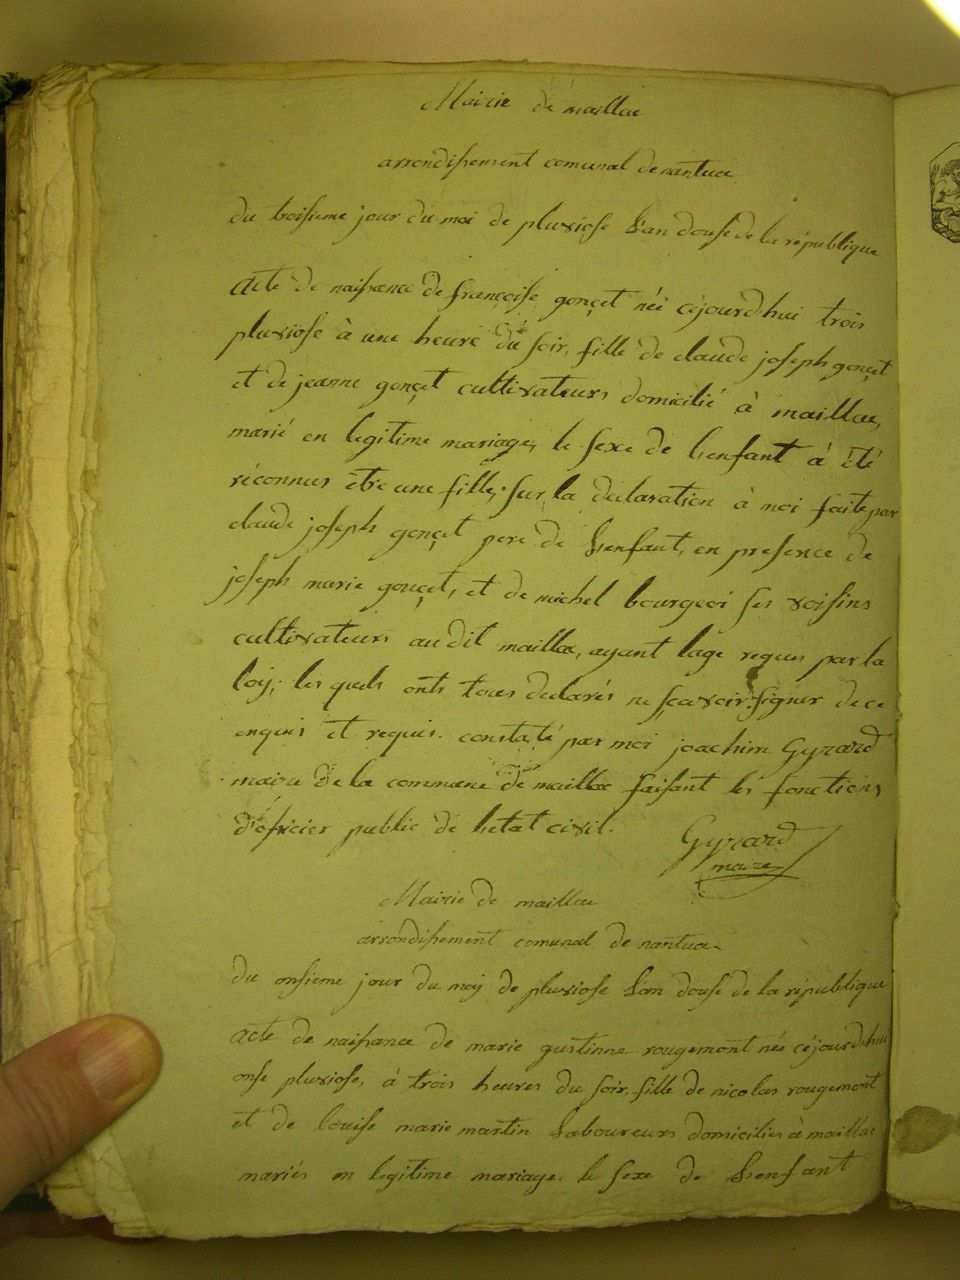 Mairie de maillac
arrondissement comunal de nantua
du troisieme jour du moi de pluviose L'an douse de la république
acte de naissance de françoise gonçet néé cejourdhui trois
pluviose à une heure du soir, fille de claude joseph gonçet
et de jeanne gonçet cultivateurs domicilié à maillac,
marié en legitime mariage, le sexe de lenfant à été
réconnus être une fille, sur la declaration à moi faite par
claude joseph gonçet pere de Lenfant, en presence de
joseph marie gonçet, et de michel bourgeoi ses voisins
cultivateurs au dit maillac, ayant lage requis par la
loy; les quels onts tous declarés ne sçavoir signer de ce
enquis et requis. constaté par moi joachim Gyrard
maire de la commune de maillac faisant les fonctions
d'oficier public de letat civil.
Gyrard
maire
Mairie de maillac
arrondissement comunal de nantua
du onsieme jour du moy de pluviose L'an douse de la république
acte de naissance de marie gustinne rougemont née céjourdhui
onse pluviose, à trois heures du soir, fille de nicolas rougemont
et de louise marie martin Laboureurs domiciliés à maillac
mariés en legitime mariage. le sexe de Lenfant